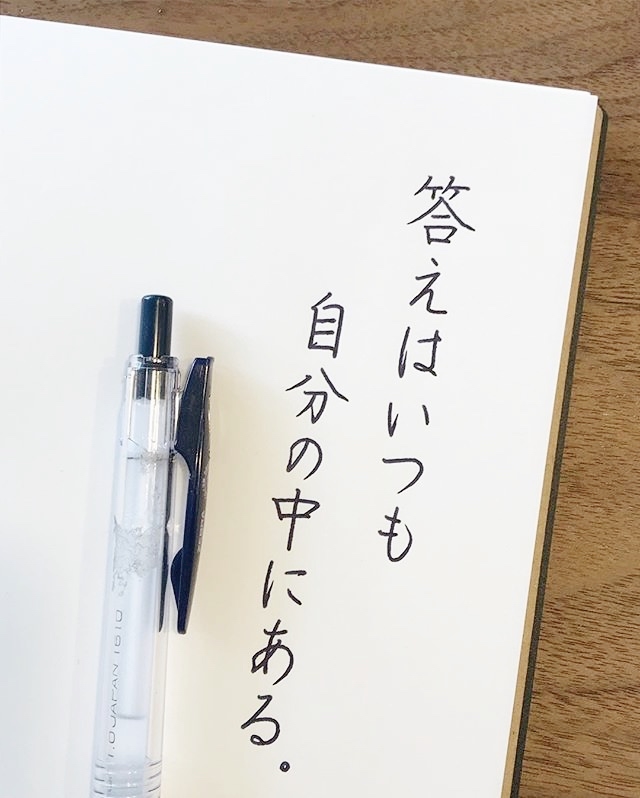 答えはいつも
自分の中にある。
1.0 JAPAN 1610